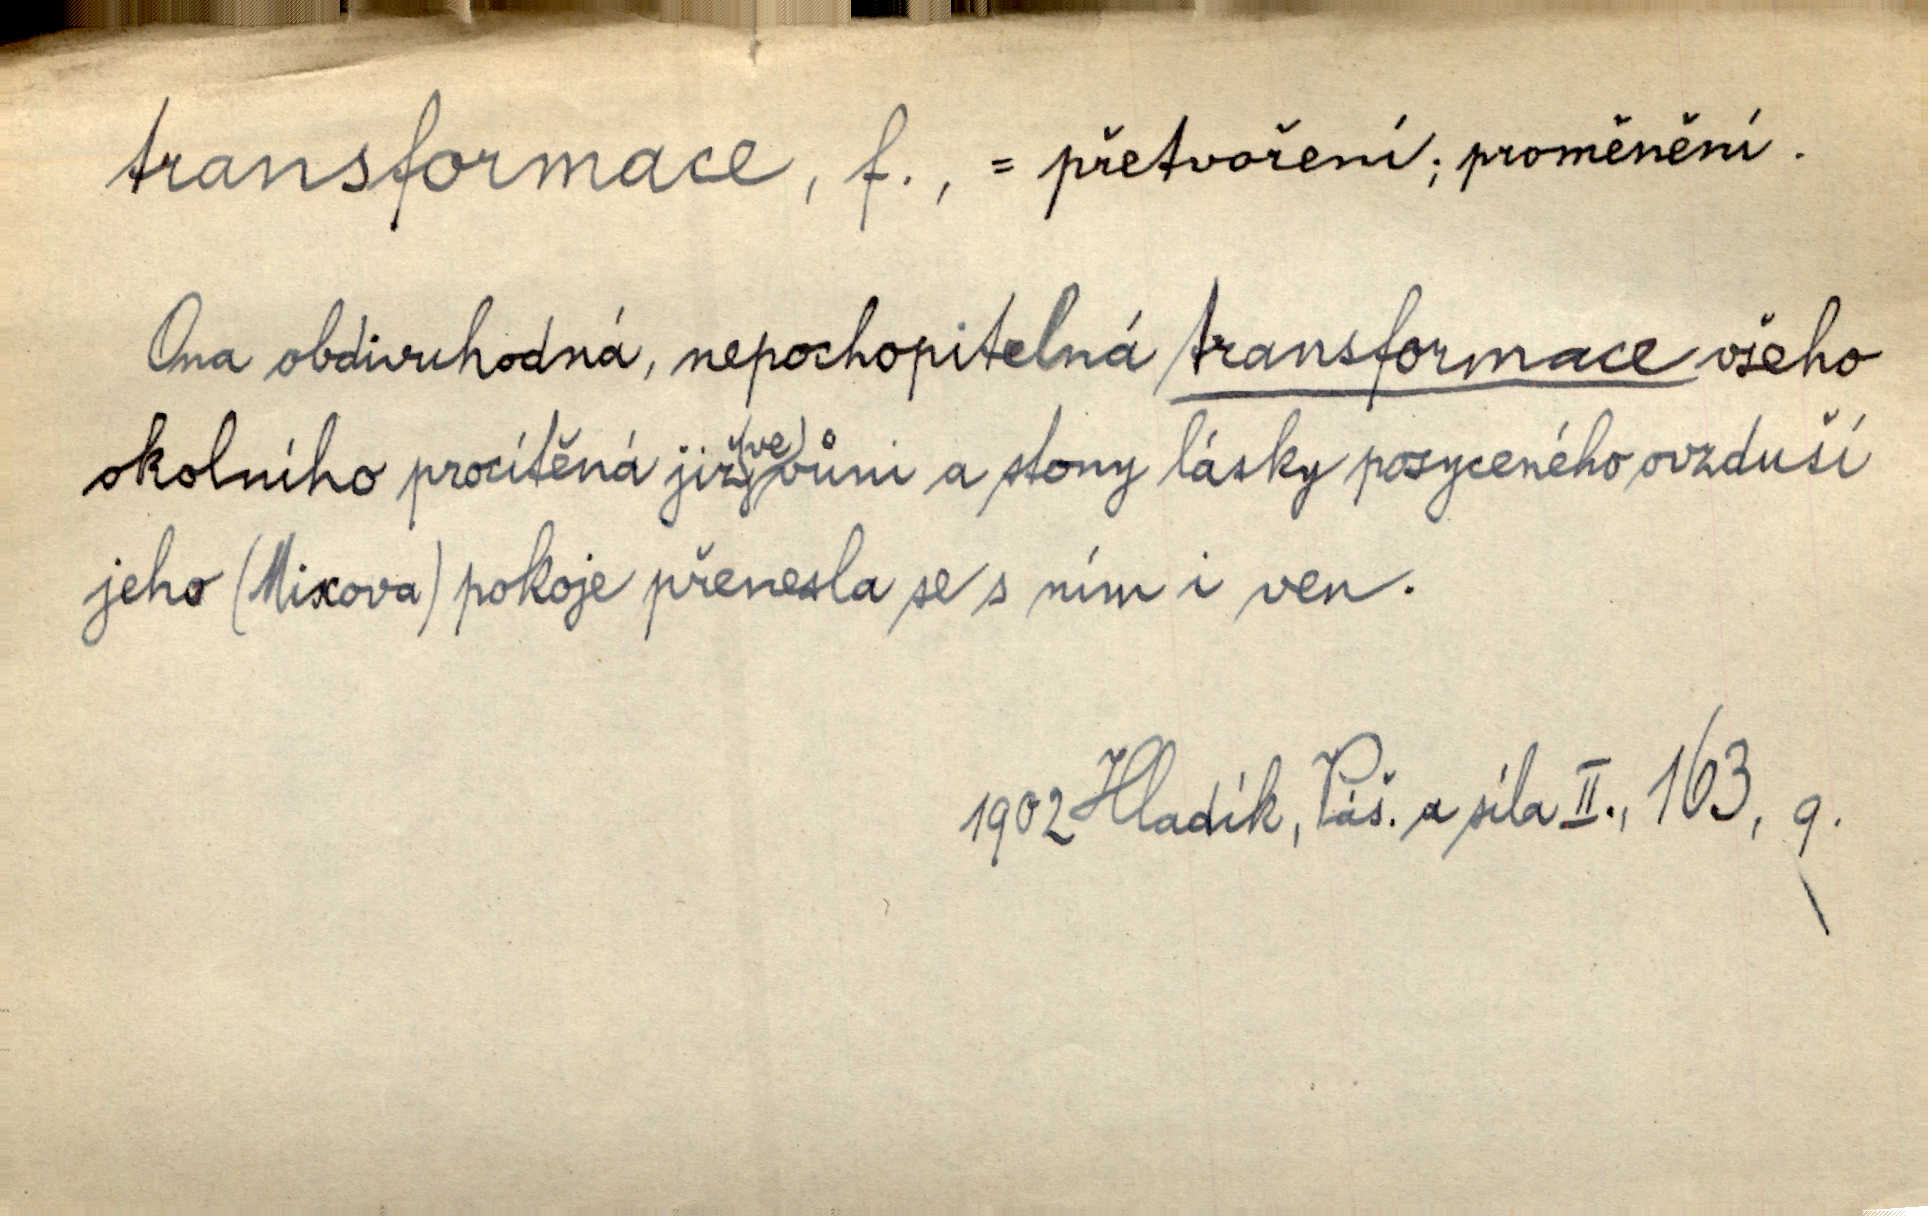 transformace, f., = přetvoření; proměnění.
Ona obdivuhodná, nepochopitelná transformace všeho
okolního procítěná již (ve) vůni a stony lásky posyceného ovzduší
jeho (Mixova) pokoje přenesla se s ním i ven.
1902 Hladík, Váš. a síla II., 163, 9.